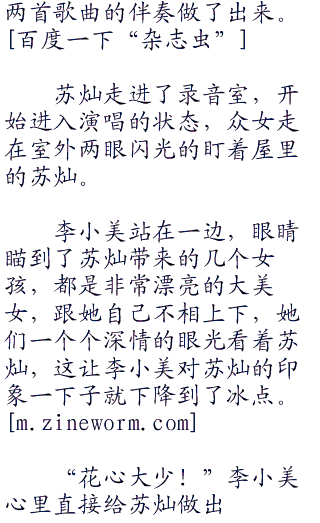 两首歌曲的伴奏做了出来。
[百度一下“杂志虫”]
苏灿走进了录音室，开
始进入演唱的状态，众女走
在室外两眼闪光的盯着屋里
的苏灿。
李小美站在一边，眼睛
瞄到了苏灿带来的几个女
孩，都是非常漂亮的大美
女，跟她自己不相上下，她
们一个个深情的眼光看着苏
灿，这让李小美对苏灿的印
象一下子就下降到了冰点。
[m.zineworm.com]
“花心大少！”李小美
心里直接给苏灿做出